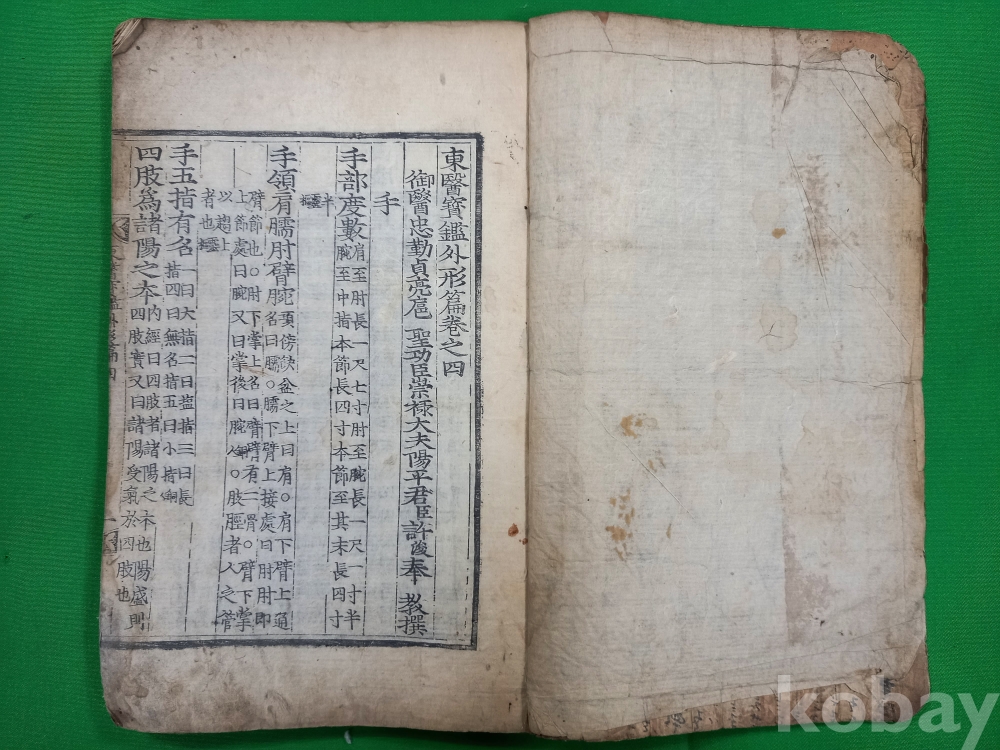 東醫寶鑑外形篇卷之四
御醫忠勤貞亮扈 聖功臣崇祿大夫陽平君臣許浚奉 敎撰
手
手部度數肩至肘長一尺七寸肘至腕長一尺一寸半
腕至中指本節長四寸本節至其末長四寸
半
手領肩臑肘臂腕項傍缺盆之上曰肩○肩下臂上通
名曰臑○臑下臂上接處曰肘肘即
臂節也○肘下掌上名曰臂臂有二骨○臂下掌
上節處曰腕又曰掌後曰腕 ○肢脛者人之管
以趨上
者也
手五指有名一曰大指二曰盐指三曰長
指四曰無名指五曰小指
四肢爲諸陽之本內經曰四肢者諸陽之本也陽盛則
四肢實又曰諸陽受氣於四肢也
kobay